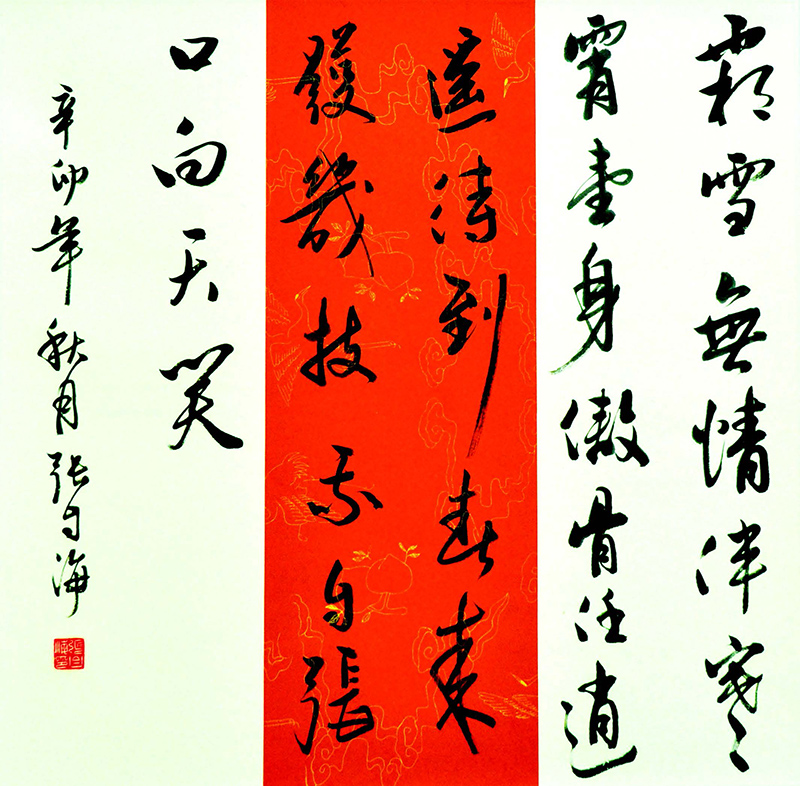 霜雪無情伴寒
霄壹身傲骨任逍
遥待到春来
發幾技我自張
口向天笑
辛卯年秋月張海